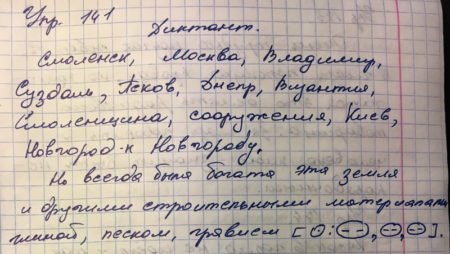 Упр. 141
Диктант.
Смоленск, Москва, Владимир,
Суздаль, Псков, Днепр, Византия,
Смоленщина, сооружения, Киев,
Новгород-к Новгороду.
Но всегда была богата эта земля
и другими строительными материалами
глиной, песком, гравием [О: (--), (-), (-)].